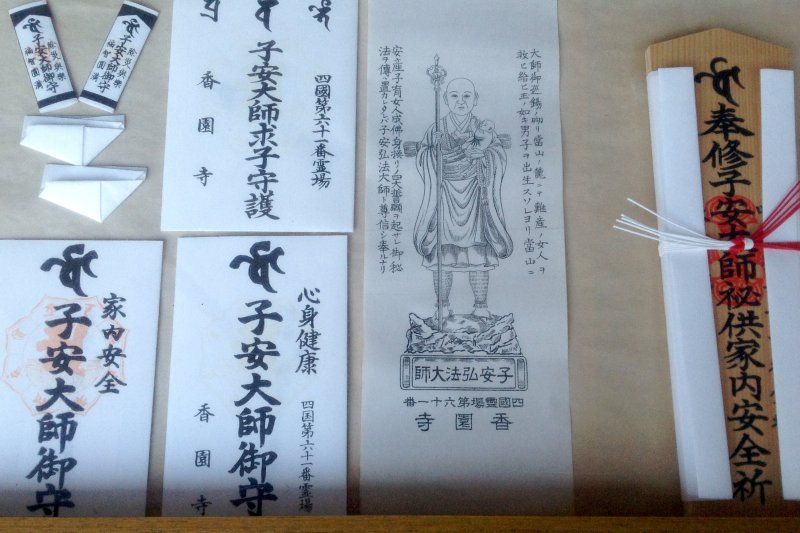 除災与楽
子安大師御守
福智円満
除災与楽
子安大師御守
福智園満
四國第六十一番霊場
子安大師求子守護
香園寺
家内安全
子安大師御守
心身健康
四国第六十一番霊場
子安大師御守
香園寺
大師御巡錫ノ砌リ當山ノ麓ニテ難産ノ女人ヲ
救ヒ給ヒ玉ノ如キ男子ヲ出生ス
安産子育女人成佛身換リノ四大誓願ヲ起サレ御秘
法ヲ傳ヘ置カレタレバ子安弘法大師ト尊信シ奉ルナリ
子安弘法大師
四國霊場第六十一番
香園寺
奉修子安大師祕供家内安全祈